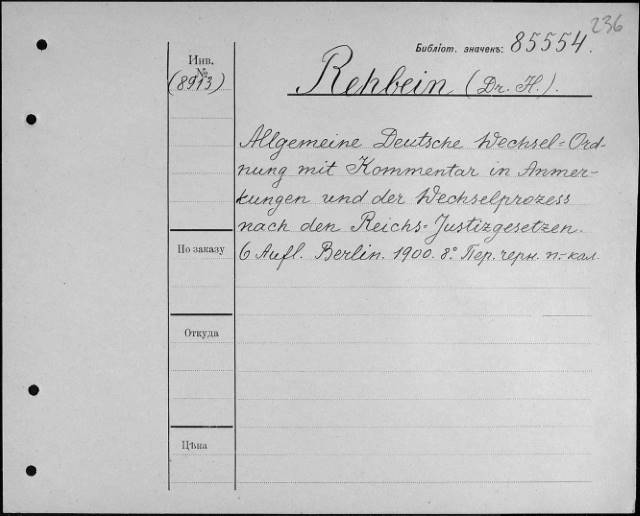 236
Библіот. значекъ: 85554.
Инв.
№
(8913)
Rehbein (Dr. H.).
Allgemeine Deutsche Wechsel-Ord-
nung mit Kommentar in Anmer-
kungen und der Wechselprozess
nach den Reichs-Justizgesetzen.
6 Aufl. Berlin. 1900. 8º Пер. черн. п.-кал.
По заказу
Откуда
Цѣна